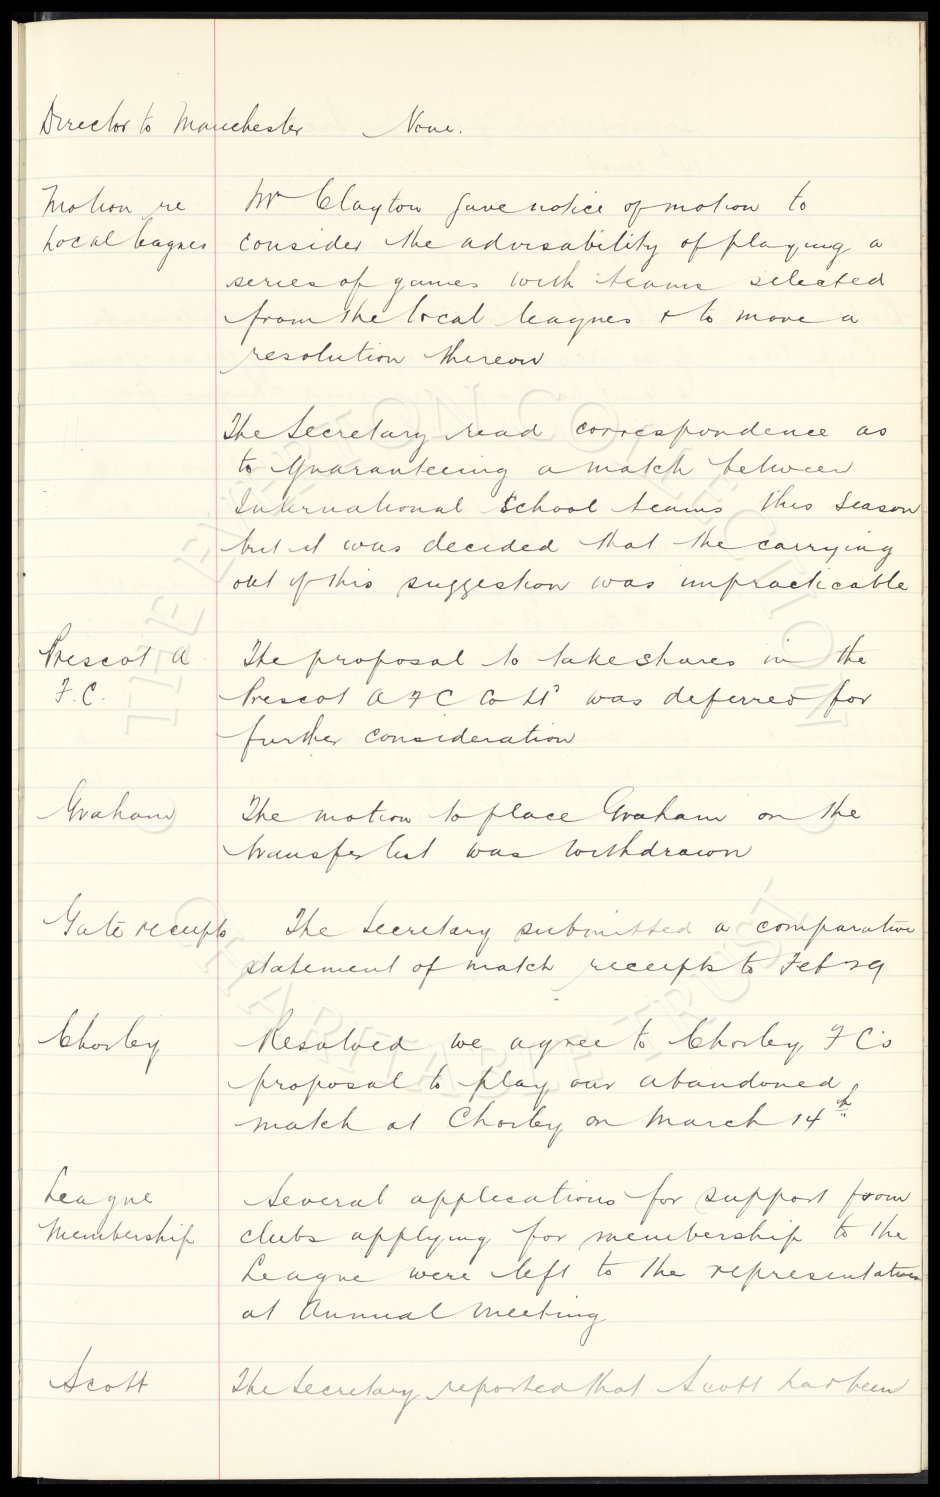 Director to Manchester None.
Motion re Mr Clayton gave notice of motion to
Local leagues consider the advisability of playing a
series of games with teams selected
from the local leagues & to move a
resolution thereon
The Secretary read correspondence as
to guaranteeing a match between
International School teams this Season
but it was decided that the carrying
out of this suggestion was impracticable
Prescot A The proposal to take shares in the
F.C. Prescot A F C Co Ld was deferred for
further consideration
Graham The motion to place Graham on the
transfer list was withdrawn
Gate receipts The Secretary submitted a comparative
statement of match receipts to Feb 29
Chorley Resolved we agree to Chorley F C's
proposal to play our abandoned
match at Chorley on March 14th
League Several applications for support from
Membership clubs applying for membership to the
League were left to the representatives
at Annual Meeting
Scott The Secretary reported that Scott had been
THE EVERTON COLLECTION
CHARITABLE TRUST